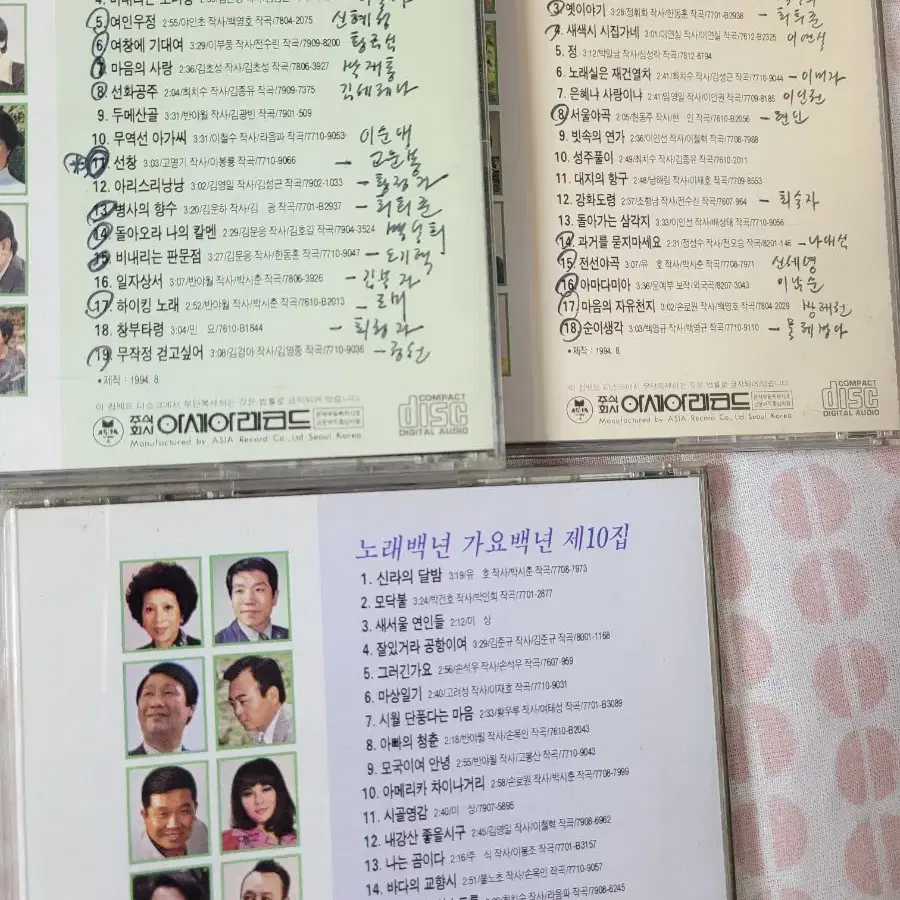 5. 여인우정 2:55/야인초 작사/백영호 작곡/7804-2075
6. 여창에 기대여 3:29/이부풍 작사/전수린 작곡/7909-8200
7. 마음의 사랑 2:36/김초성 작사/김초성 작곡/7806-3927
8. 선화공주 2:04/최치수 작사/김종유 작곡/7909-7375 김세레나
9. 두메산골 3:31/반야월 작사/김광빈 작곡/7901-509
10. 무역선 아가씨 3:31/이철수 작사/라음파 작곡/7710-9053
11. 선창 3:03/고명기 작사/이봉룡 작곡/7710-9066 - 고운봉
12. 아리스리낭낭 3:02/김영일 작사/김성근 작곡/7902-1033
13. 병사의 향수 3:20/김운하 작사/김 광 작곡/7701-B2937 - 최희준
14. 돌아오라 나의 칼멘 2:29/김문응 작사/김호길 작곡/7904-3524
15. 비내리는 판문점 3:27/김문응 작사/한동훈 작곡/7710-9047 - 오기택
16. 일자상서 3:07/반야월 작사/박시춘 작곡/7806-3926
17. 하이킹 노래 2:52/반야월 작사/박시춘 작곡/7610-B2013
18. 창부타령 3:04/민 요/7610-B1844
19. 무작정 걷고싶어 3:08/김경아 작사/김영종 작곡/7710-9036
•제작 : 1994. 8.
이 컴팩트 디스크에서 무단복제하는 것은 법률로 금지되어 있읍니다
ASIA 주식회사 아세아레코드
Manufactured by ASIA Record Co., Ltd Seoul Korea
COMPACT disc DIGITAL AUDIO
3. 옛이야기 3:28/정휘화 작사/한동훈 작곡/7701-B2938 - 최희준
4. 새색시 시집가네 3:01/이연실 작사/이연실 작곡/7612-B2325 이연실
5. 점 3:12/박일남 작사/김성하 작곡/7612-8794
6. 노래실은 재건열차 2:41/최치수 작사/김성근 작곡/7710-9044 - 이미자
7. 은혜냐 사랑이냐 2:41/임영일 작사/이인권 작곡/7709-8185 이인권
8. 서울야곡 2:05/현동주 작사/현 인 작곡/7610-B2056 - 현인
9. 빗속의 연가 2:36/이인선 작사/이철혁 작곡/7708-7988
10. 성주풀이 2:49/최치수 작사/김종유 작곡/7610-2011
11. 대지의 항구 2:48/남해림 작사/이재호 작곡/7709-8553
12. 강화도령 2:37/조항남 작사/전수린 작곡/7607-964 - 최숙자
13. 돌아가는 삼각지 3:33/이인선 작사/배상태 작곡/7710-9056
14. 과거를 묻지마세요 2:31/정성수 작사/전오승 작곡/8201-146 - 나애심
15. 전선야곡 3:07/유 호 작사/박시춘 작곡/7708-7971 신세영
16. 아마다미아 3:36/문예부 보작/외국곡/8207-3043
17. 마음의 자유천지 3:02/손로원 작사/백영호 작곡/7804-2029 방태원
18. 순이생각 3:03/백영규 작사/백영규 작곡/7710-9110
•제작 : 1994. 8.
이 컴팩트 디스크에서 무단복제하는 것은 법률로 금지되어 있읍니다
ASIA 주식회사 아세아레코드
Manufactured by ASIA Record Co., Ltd Seoul Korea
COMPACT disc DIGITAL AUDIO
노래백년 가요백년 제10집
1. 신라의 달밤 3:19/유 호 작사/박시춘 작곡/7708-7973
2. 모닥불 3:24/박건호 작사/박인희 작곡/7701-2877
3. 새서울 연인들 2:12/미 상
4. 잘있거라 공항이여 3:29/김준규 작사/김준규 작곡/8001-1168
5. 그러긴가요 2:56/손석우 작사/손석우 작곡/7607-959
6. 마상일기 2:40/고려성 작사/이재호 작곡/7710-9031
7. 시월 단풍다는 마음 2:33/황우루 작사/여대성 작곡/7701-B3089
8. 아빠의 청춘 2:18/반야월 작사/손목인 작곡/7610-B2043
9. 모국이여 안녕 2:55/반야월 작사/고봉산 작곡/7710-9043
10. 아메리카 차이나거리 2:58/손로원 작사/박시춘 작곡/7708-7999
11. 시골영감 2:40/미 상/7907-5895
12. 내강산 좋을시구 2:45/김영일 작사/이철혁 작곡/7908-6962
13. 나는 곰이다 2:16/주 식 작사/이봉조 작곡/7701-B3157
14. 바다의 교향시 2:51/불노초 작사/손목인 작곡/7710-9057